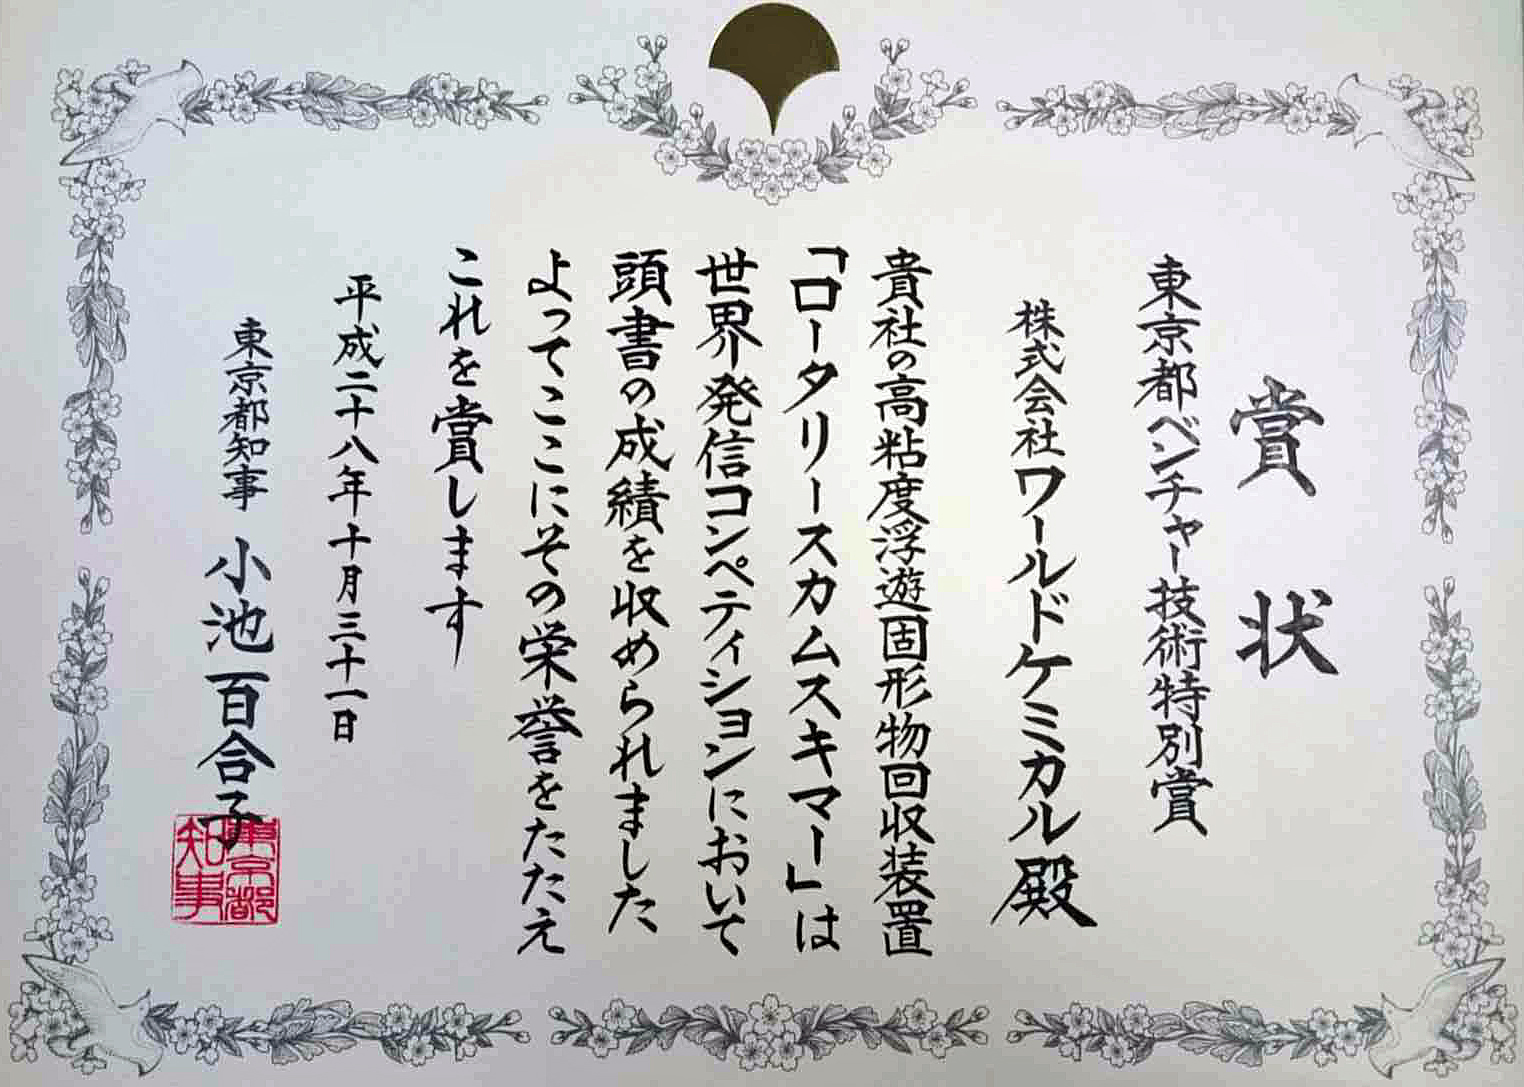 賞状
東京都ベンチャー技術特別賞
株式会社ワールドケミカル殿
貴社の高粘度浮遊固形物回収装置
「ロータリースカムスキマー」は
世界発信コンペティションにおいて
頭書の成績を収められました
よってここにその栄誉をたたえ
これを賞します
平成二十八年十月三十一日
東京都知事 小池百合子
東京都
知事